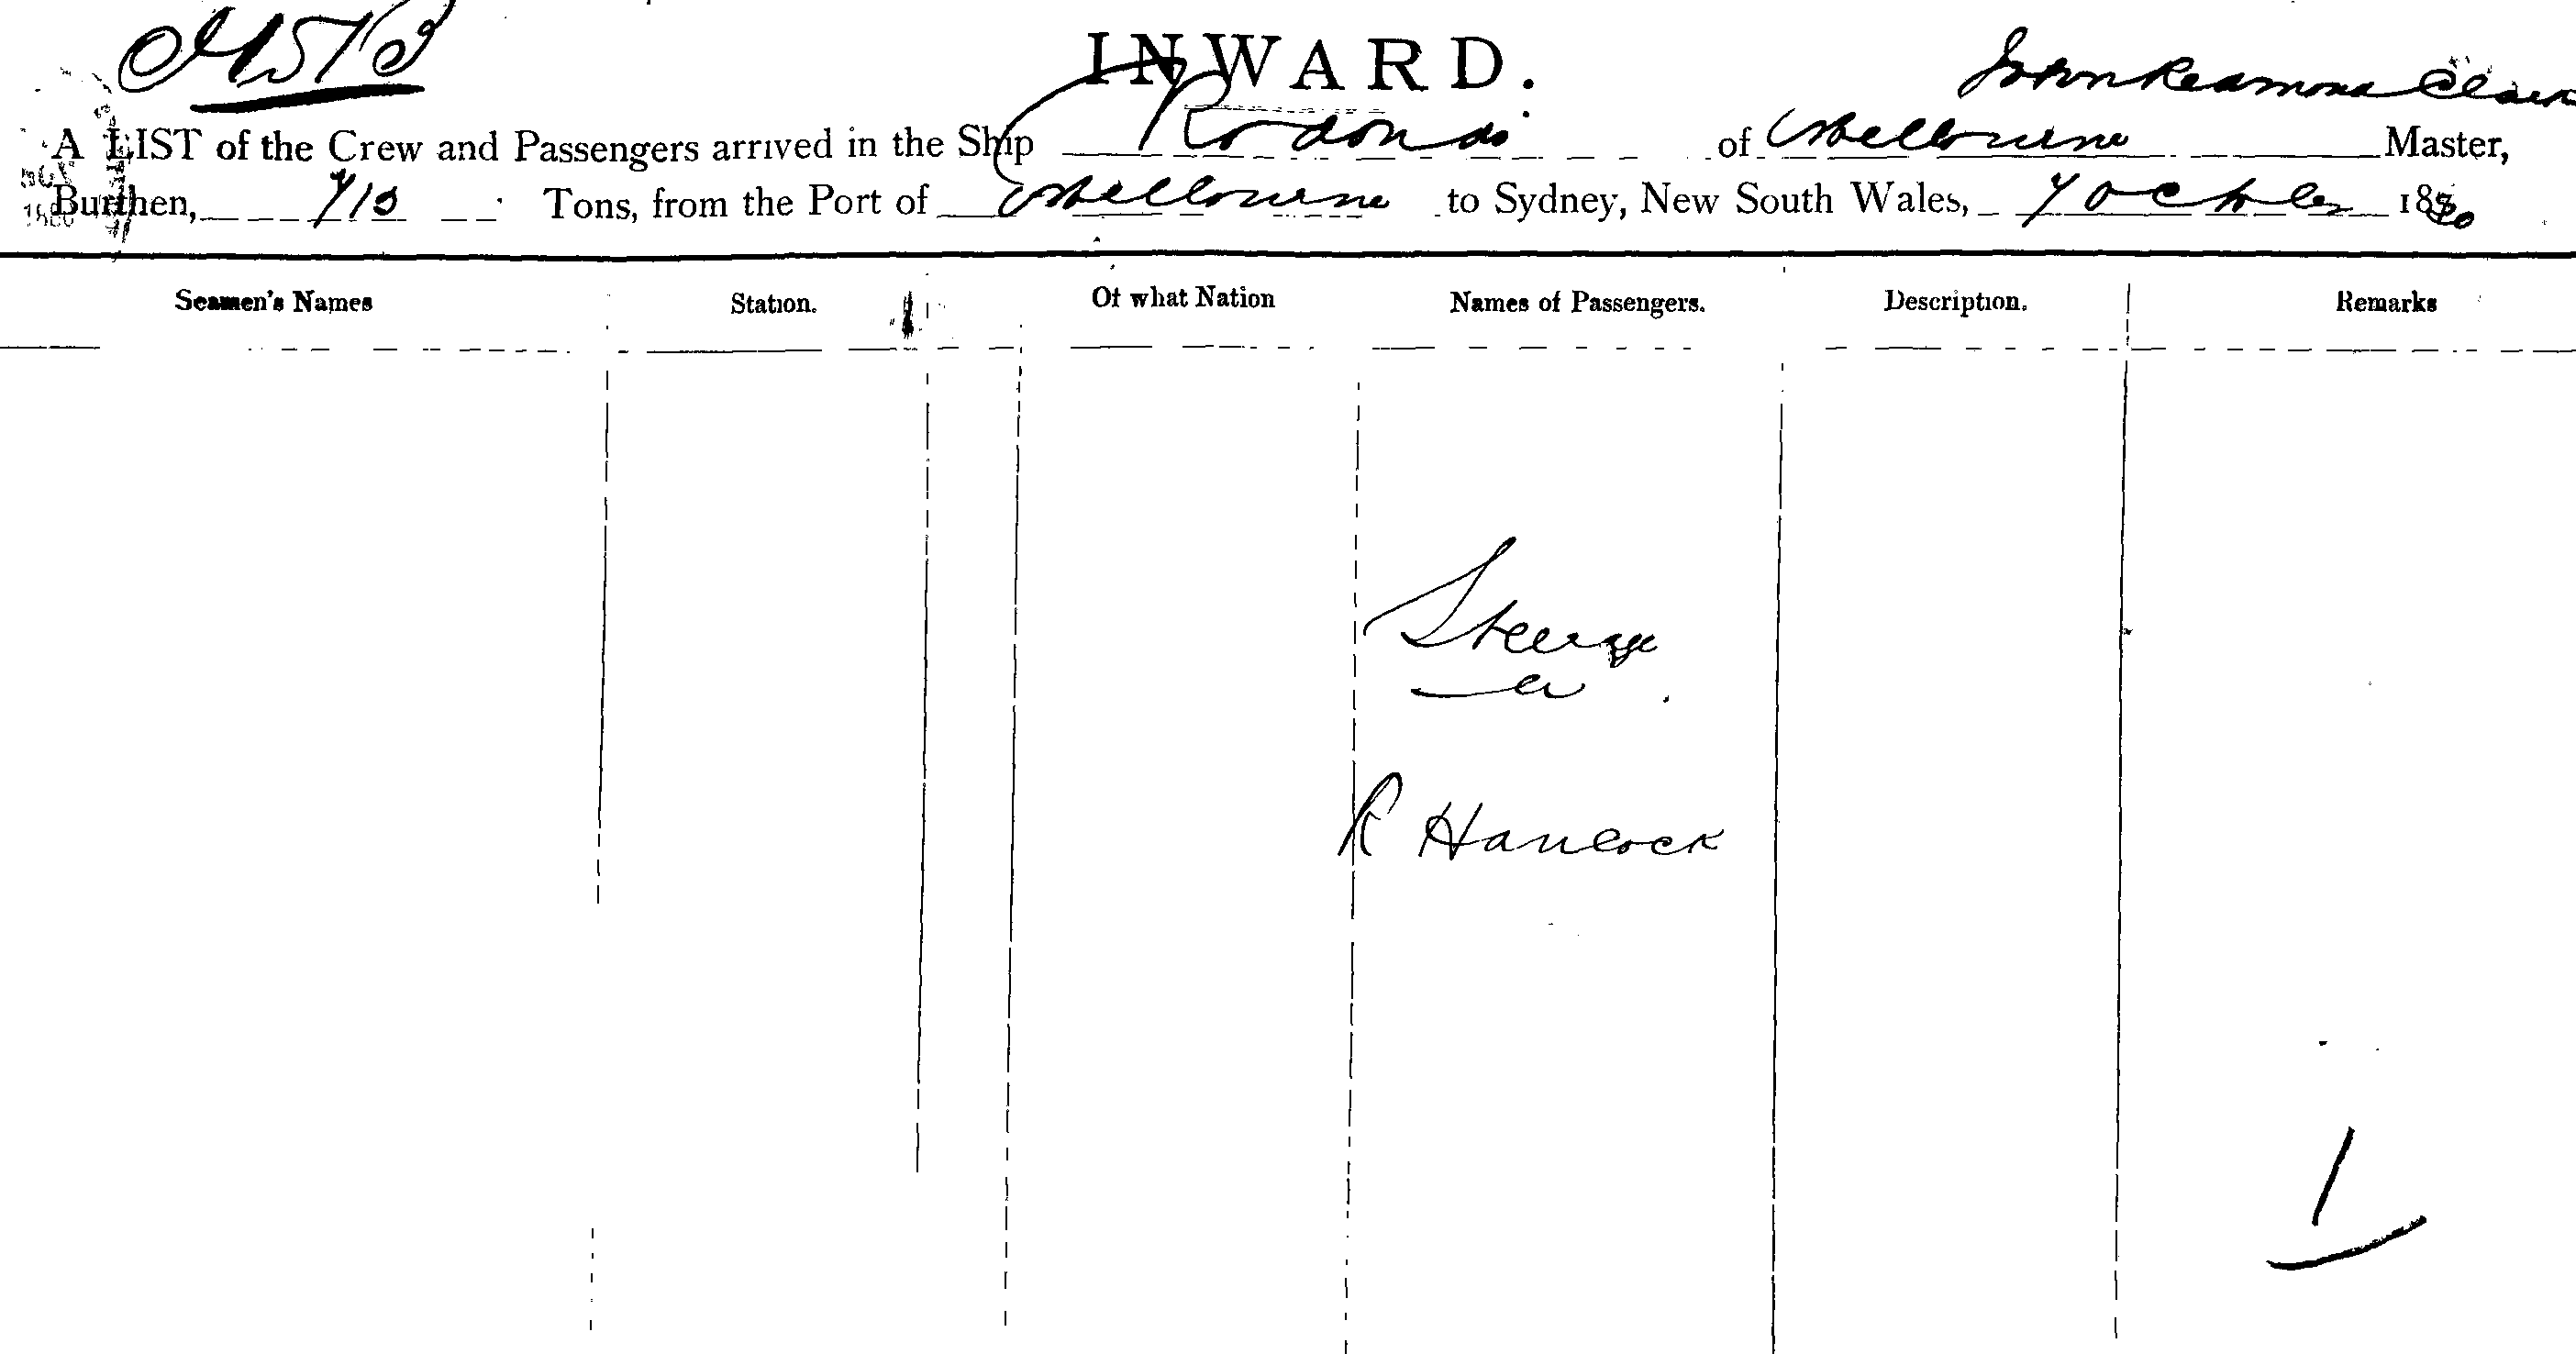 INWARD.
A LIST of the Crew and Passengers arrived in the Ship Rodondo of Melbourne Master,
Burthen, 710 Tons, from the Port of Melbourne to Sydney, New South Wales, 7 October 1880
Seamen's Names Station. Of what Nation Names of Passengers. Description. Remarks
Steerage
R Hancock
1